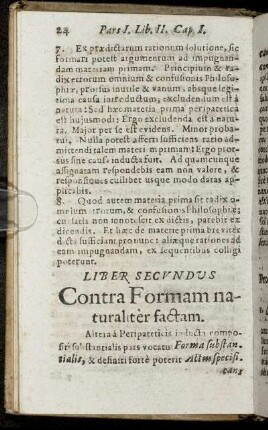 24 Pars I. Lib. II. Cap. I.
7. Ex prædictarum rationum solutione, sic
formari potest argumentum ad impugnan-
dam materiam primam. Principium & ra-
dix errorum omnium & confusionis Philoso-
phiæ, prorsus inutile & vanum, absque legi-
tima causa introductum, excludendum est à
natura: Sed hæc materia prima peripatetica
est hujusmodi: Ergo excludenda est à na-
tura. Major per se est evidens. Minor proba-
tur. Nulla potest afferri sufficiens ratio ad-
mittendi talem materiam primam: Ergo pror-
sus sine causa inducta fuit. Ad quamcunque
assignatam respondebis eam non valere, &
responsiones cuilibet usque modo datas ap-
plicabis.
8. Quod autem materia prima sit radix o-
mnium errorum, & confusionis Philosophiæ;
cuilibet non ignoto ex dictis, patebit ex
dicendis. Et hæc de materie prima breviter
dicta sufficiant pro nunc: aliæque rationes ad
eam impugnandam, ex sequentibus colligi
poterunt.
LIBER SECVNDVS
Contra Formam na-
turaliter factam.
Altera à Peripateticis inducta compo-
siti substantialis pars vocatur Forma substan-
tialis, & definiri fortè poterit Actus specifi-
cans